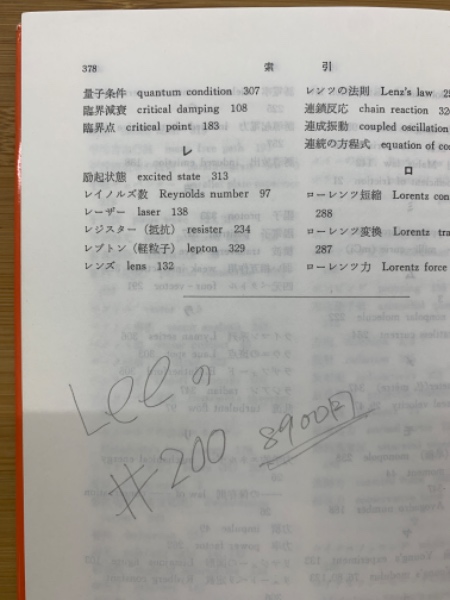 378
索 引
量子条件 quantum condition 307
臨界減衰 critical damping 108
臨界点 critical point 183
レ
励起状態 excited state 313
レイノルズ数 Reynolds number 97
レーザー laser 138
レジスター（抵抗） resister 234
レプトン（軽粒子） lepton 329
レンズ lens 132
レンツの法則 Lenz's law
連鎖反応 chain reaction
連成振動 coupled oscillation
連続の方程式 equation of
ロ
ローレンツ短縮 Lorentz
288
ローレンツ変換 Lorentz
287
ローレンツ力 Lorentz force
Leeの
#200 8900円